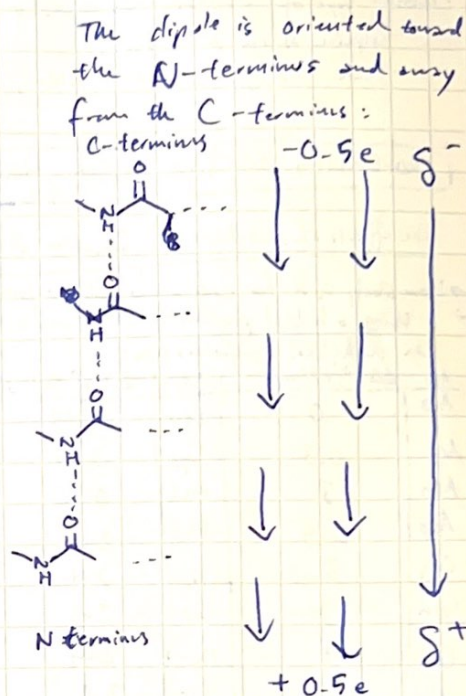 The dipole is oriented toward
the N-terminus and away
from the C-terminus:
C-terminus
-0.5e δ⁻
O
N
H
O
N
H
O
N
H
O
N
H
N terminus
δ⁺
+ 0.5e